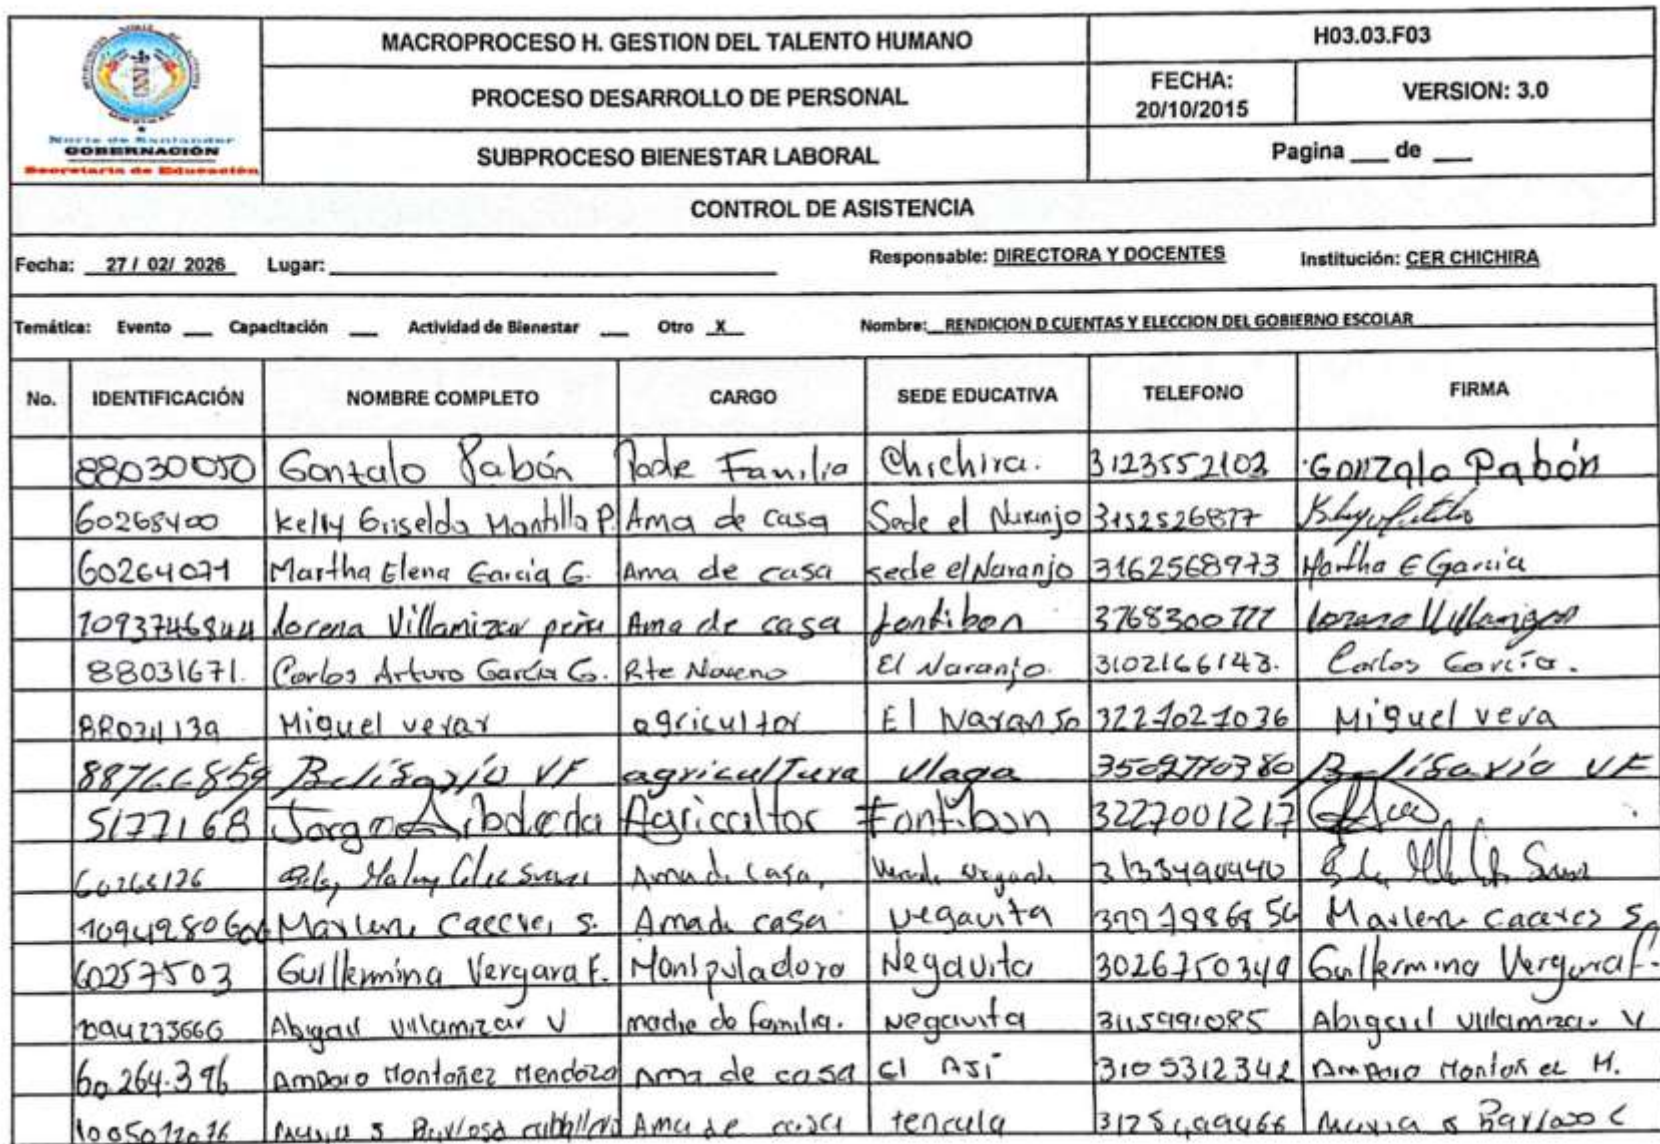 MACROPROCESO H. GESTION DEL TALENTO HUMANO H03.03.F03
PROCESO DESARROLLO DE PERSONAL FECHA: 20/10/2015 VERSION: 3.0
Norte de Santander
GOBERNACIÓN
Secretaría de Educación
SUBPROCESO BIENESTAR LABORAL Pagina ___ de ___
CONTROL DE ASISTENCIA
Fecha: 27 / 02/ 2026 Lugar: Responsable: DIRECTORA Y DOCENTES Institución: CER CHICHIRA
Temática: Evento ___ Capacitación ___ Actividad de Bienestar ___ Otro X Nombre: RENDICION D CUENTAS Y ELECCION DEL GOBIERNO ESCOLAR
No. IDENTIFICACIÓN NOMBRE COMPLETO CARGO SEDE EDUCATIVA TELEFONO FIRMA
88030050 Gonzalo Pabón Padre Familia Chichira. 3123552103 Gonzalo Pabón
60268400 Kelly Griselda Mantilla P. Ama de casa Sede el Naranjo 3152526877
60264071 Martha Elena García G. Ama de casa sede el Naranjo 3162568973 Martha E García
1093746844 Lorena Villamizar peña Ama de casa fontibon 3168300777 Lorena Villamizar
88031671. Carlos Arturo García G. Rte Noveno El Naranjo. 3102166143. Carlos García.
Miguel verar agricultor El Naranjo 3221021036 Miguel vera
Belisario VF agricultura Ulaga 3502770380 Belisario VF
5177168 Jorge Agricultor Fontibon 3227001217
60265126 Ama de casa, 3133490440
Marlene S. Ama de casa Negavita Marlene Caceres S.
60257503 Guillermina Vergara F. Manipuladora Negavita 3026750349 Guillermina Vergara F.
1094273666 Abigail Villamizar V madre de familia. Negavita 3115991085 Abigail Villamizar V
60.264.396 Amparo Montañez Mendoza Ama de casa El Ají 3105312342 Amparo Montañez M.
Ama de casa tencula